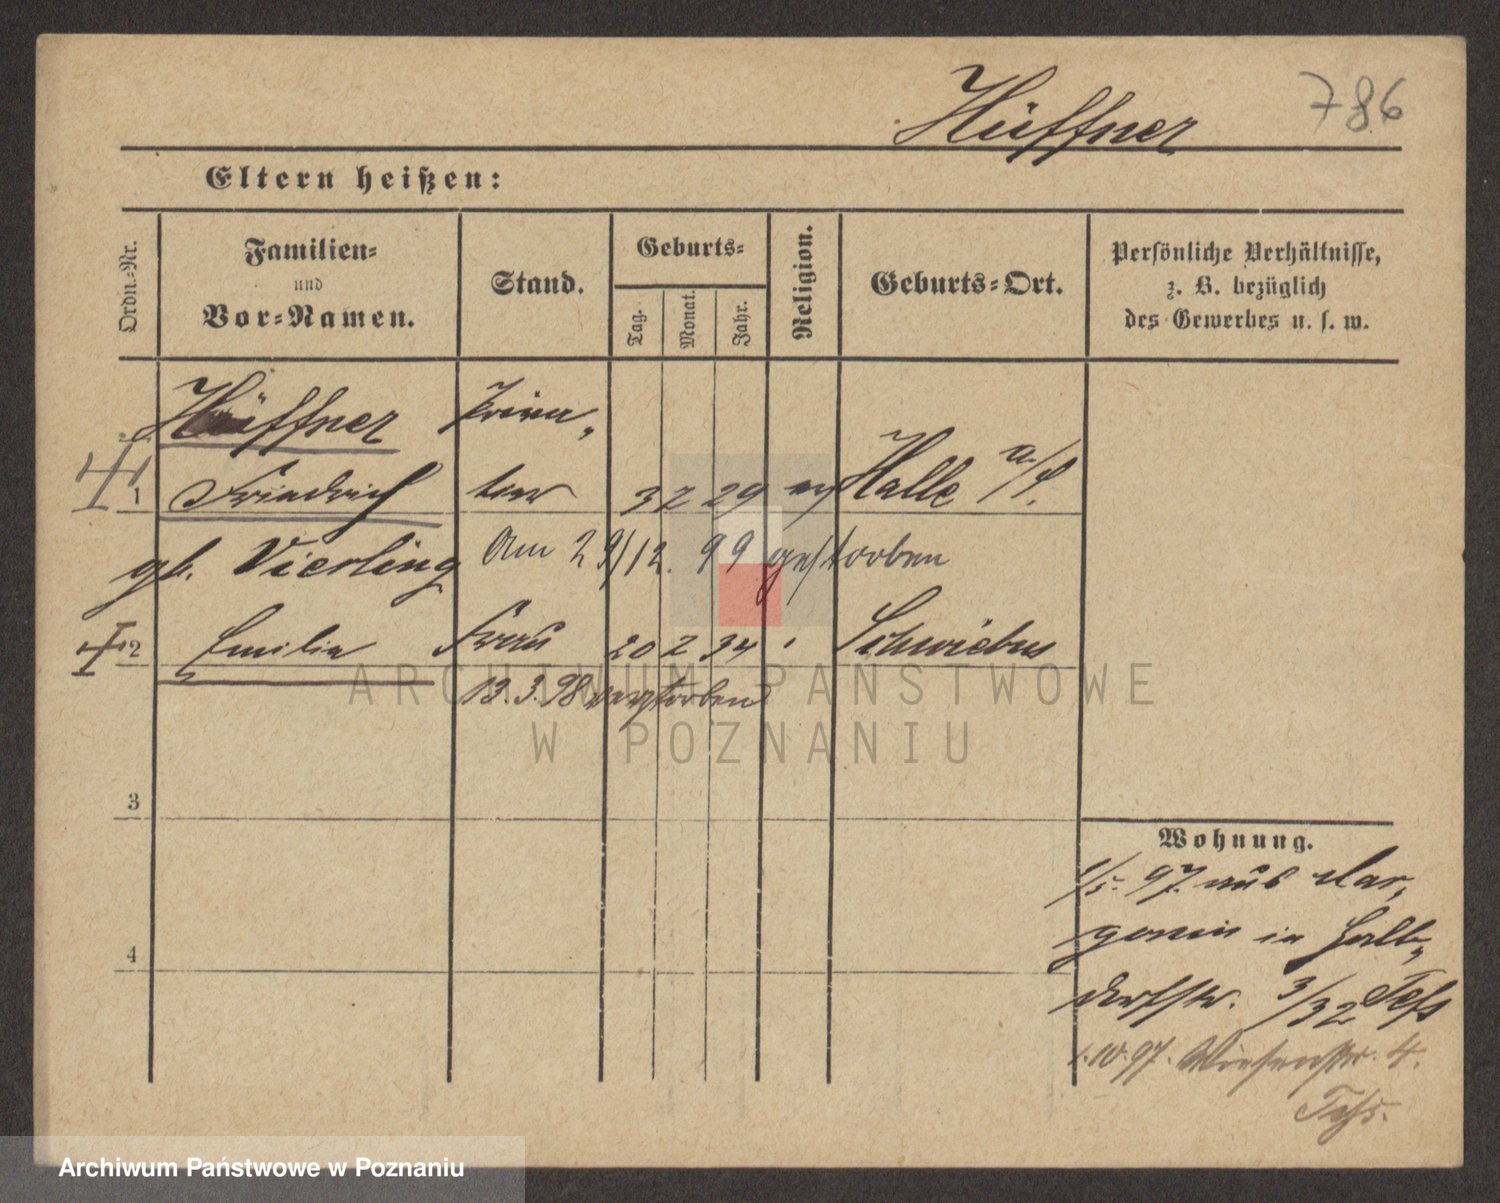 786
Hüffner
Eltern heißen:
Ordn.-Nr.
Familien-
und
Vor-Namen.
Stand.
Geburts-
Tag.
Monat.
Jahr.
Religion.
Geburts-Ort.
Persönliche Verhältnisse,
z. B. bezüglich
des Gewerbes u. s. w.
Hüffner Priva-
1 Friedrich tier 3 2 29 ev Halle a/S.
gb. Vierling Am 29/12. 99 gestorben
2 Emilie Frau 20 2 34 " Schwiebus
13.3.98 verstorben
ARCHIWUM PAŃSTWOWE
W POZNANIU
3
4
Wohnung.
1/5. 97. aus Mar-
gonin in Halb-
dorfstr. 3/32
1.10.97. Wiesenstr. 4.
Archiwum Państwowe w Poznaniu